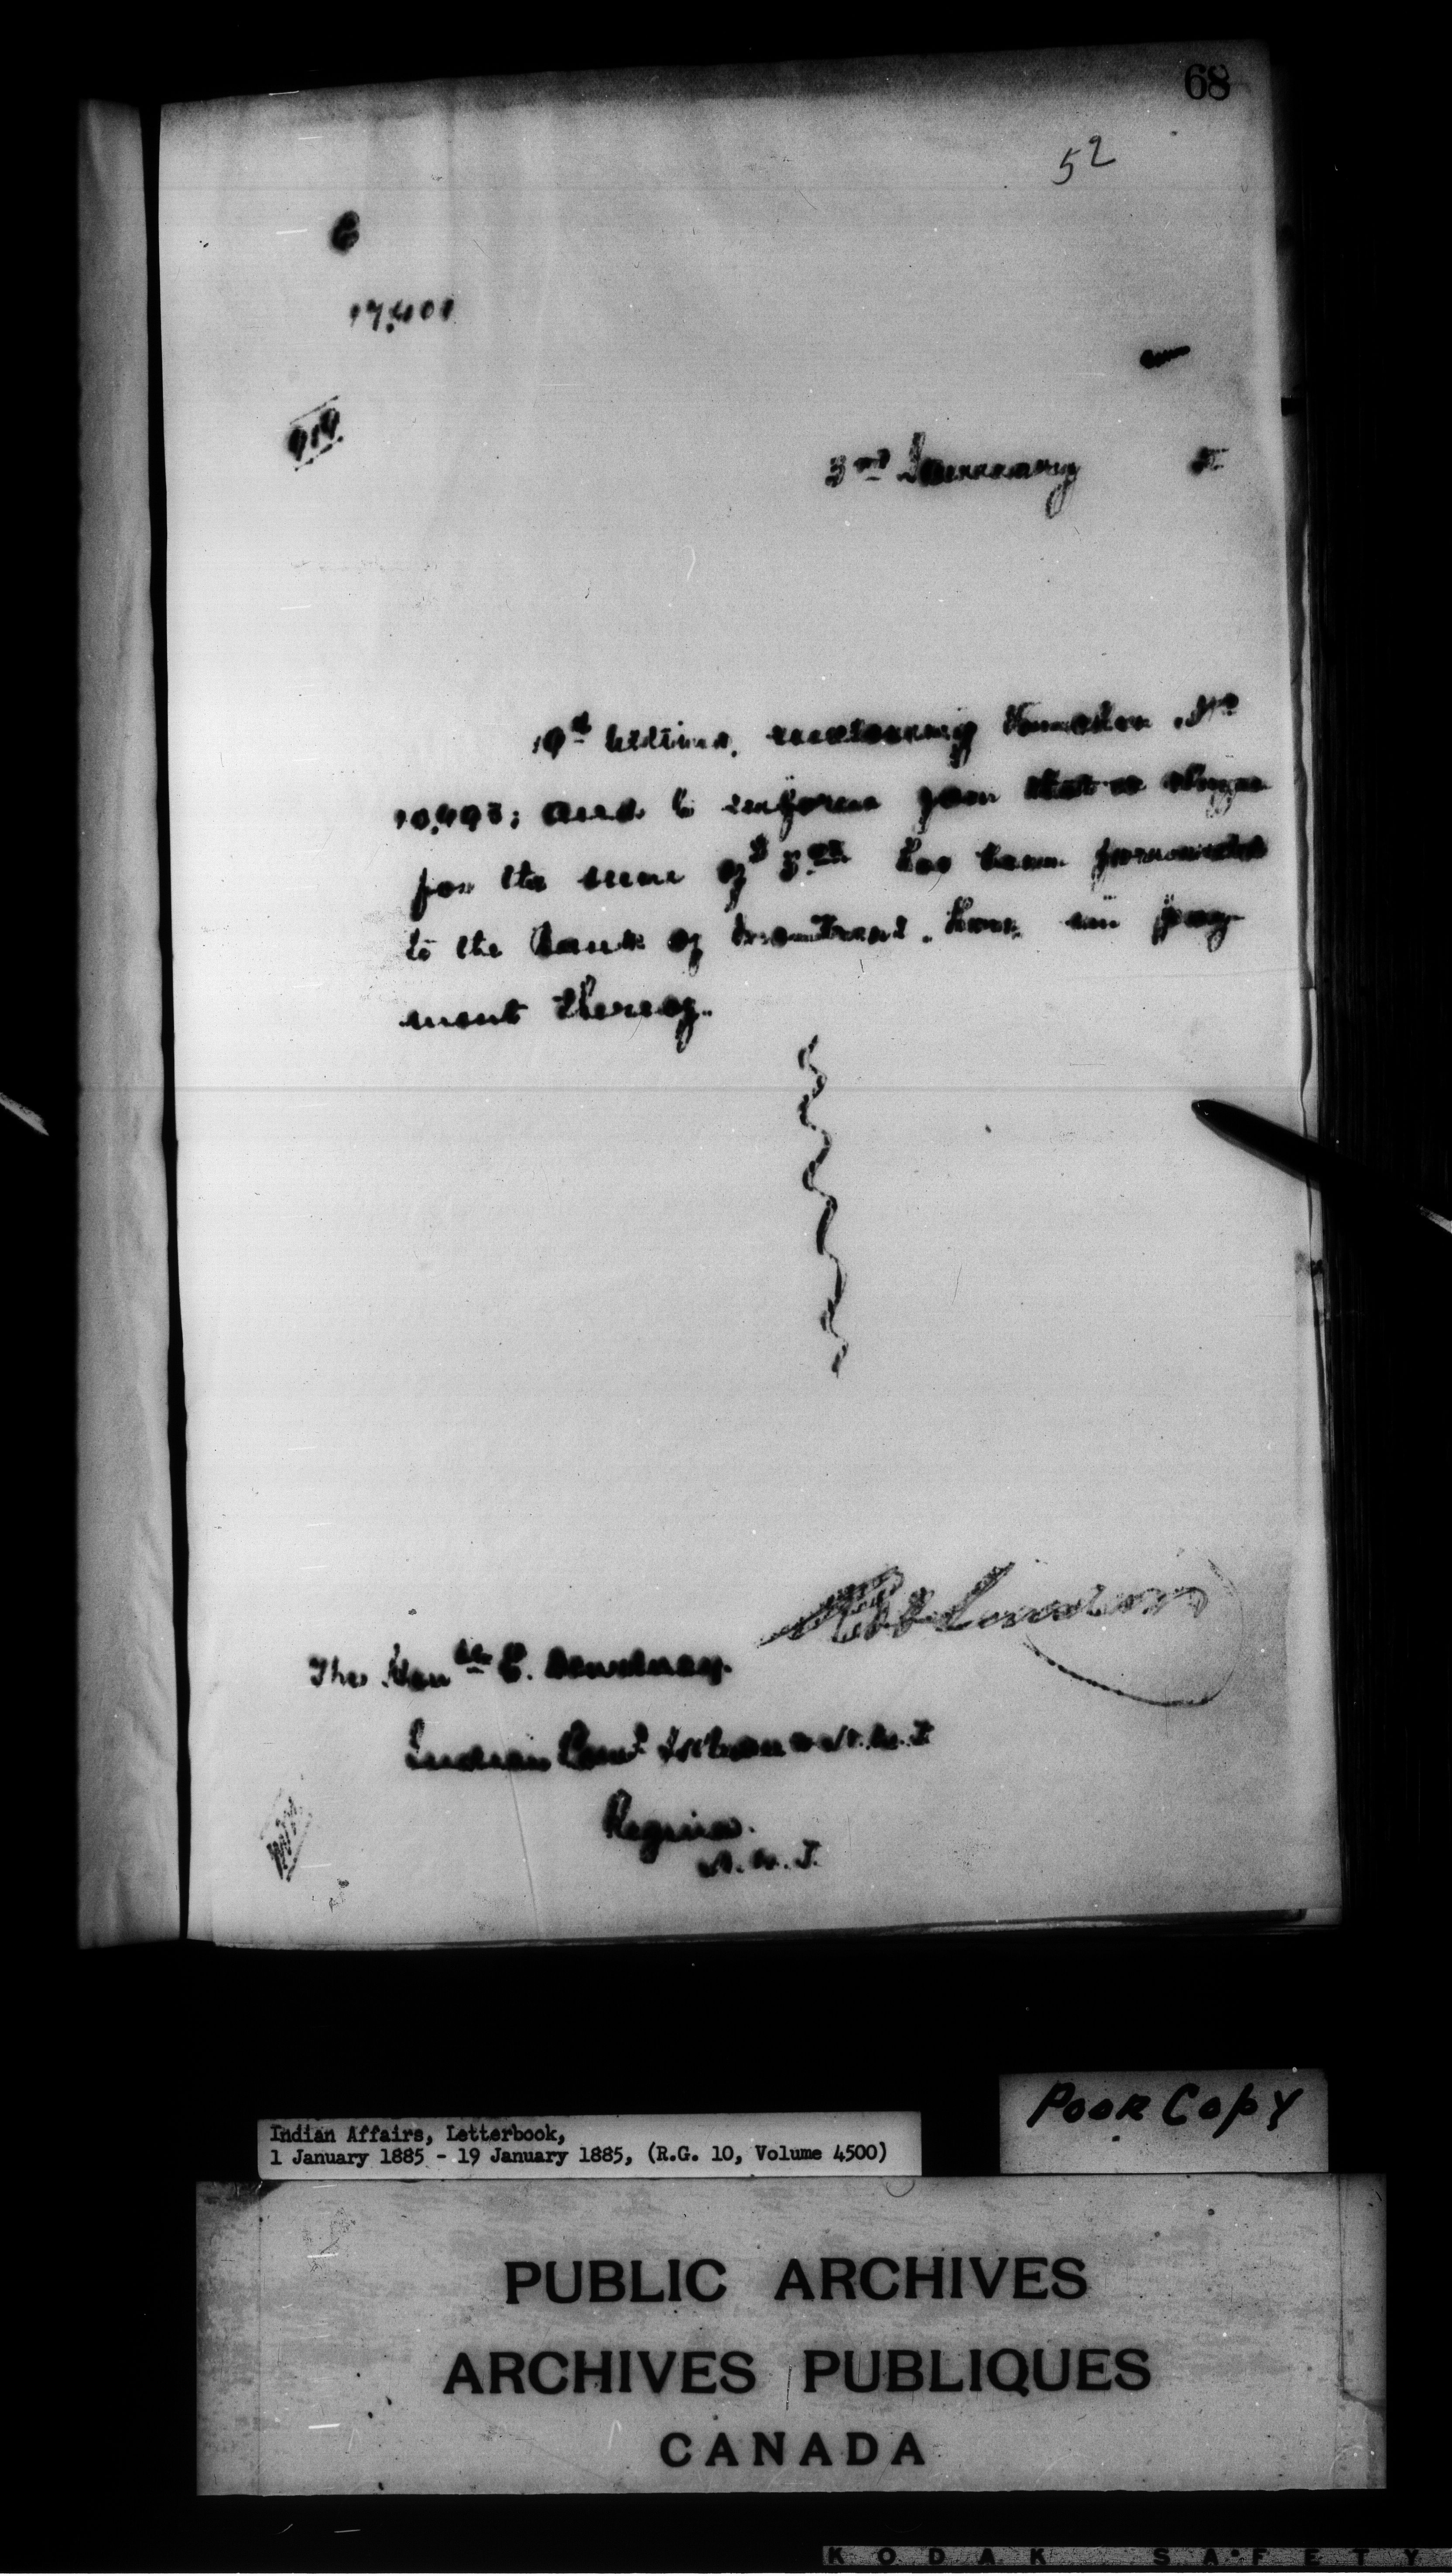 68
52
17,401
919
3rd January 5
10th ultimo, enclosing Voucher No
10,493; and to inform you that a cheque
for the sum of $5.00 has been forwarded
to the Bank of Montreal, here, in pay-
ment thereof.
The Honble E. Dewdney.
Indian Comr Manitoba & N.W.T
Regina.
N.W.T.
Poor Copy
Indian Affairs, Letterbook,
1 January 1885 - 19 January 1885, (R.G. 10, Volume 4500)
PUBLIC ARCHIVES
ARCHIVES PUBLIQUES
CANADA
KODAK SAFETY